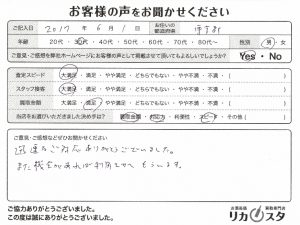 お客様の声をお聞かせください
ご記入日 2017年 6月 1日 お住いの都道府県 東京都
年齢 20代・30代・40代・50代・60代・70代・80代〜 性別 男・女
ご意見・ご感想を弊社ホームページにお客様の声として掲載させて頂いてもよろしいでしょうか? Yes・No
査定スピード 大満足・満足・やや満足・どちらでもない・やや不満・不満
スタッフ接客 大満足・満足・やや満足・どちらでもない・やや不満・不満
買取金額 大満足・満足・やや満足・どちらでもない・やや不満・不満
当店をお選びいただきました決め手は? 買取金額・対応力・利便性・スピード・その他( )
ご意見・ご感想などぜひお聞かせください
迅速なご対応ありがとうございました。
また機会があれば利用させてもらいます。
ご協力ありがとうございました。
この度は誠にありがとうございました。
お酒高価買取専門店
リカスタ